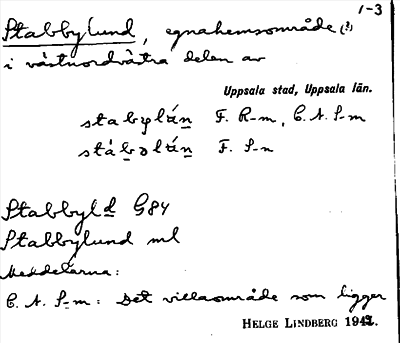 1-3
Stabbylund, egnahemsområde (?)
i västnordvästra delen av
Uppsala stad, Uppsala län.
stabylún F. R-m, C. A. S-m
stábəlún F. S-n
Stabbyld G84
Stabbylund ml
Meddelarna:
C. A. S-m: Det villaområde som ligger
HELGE LINDBERG 1942.